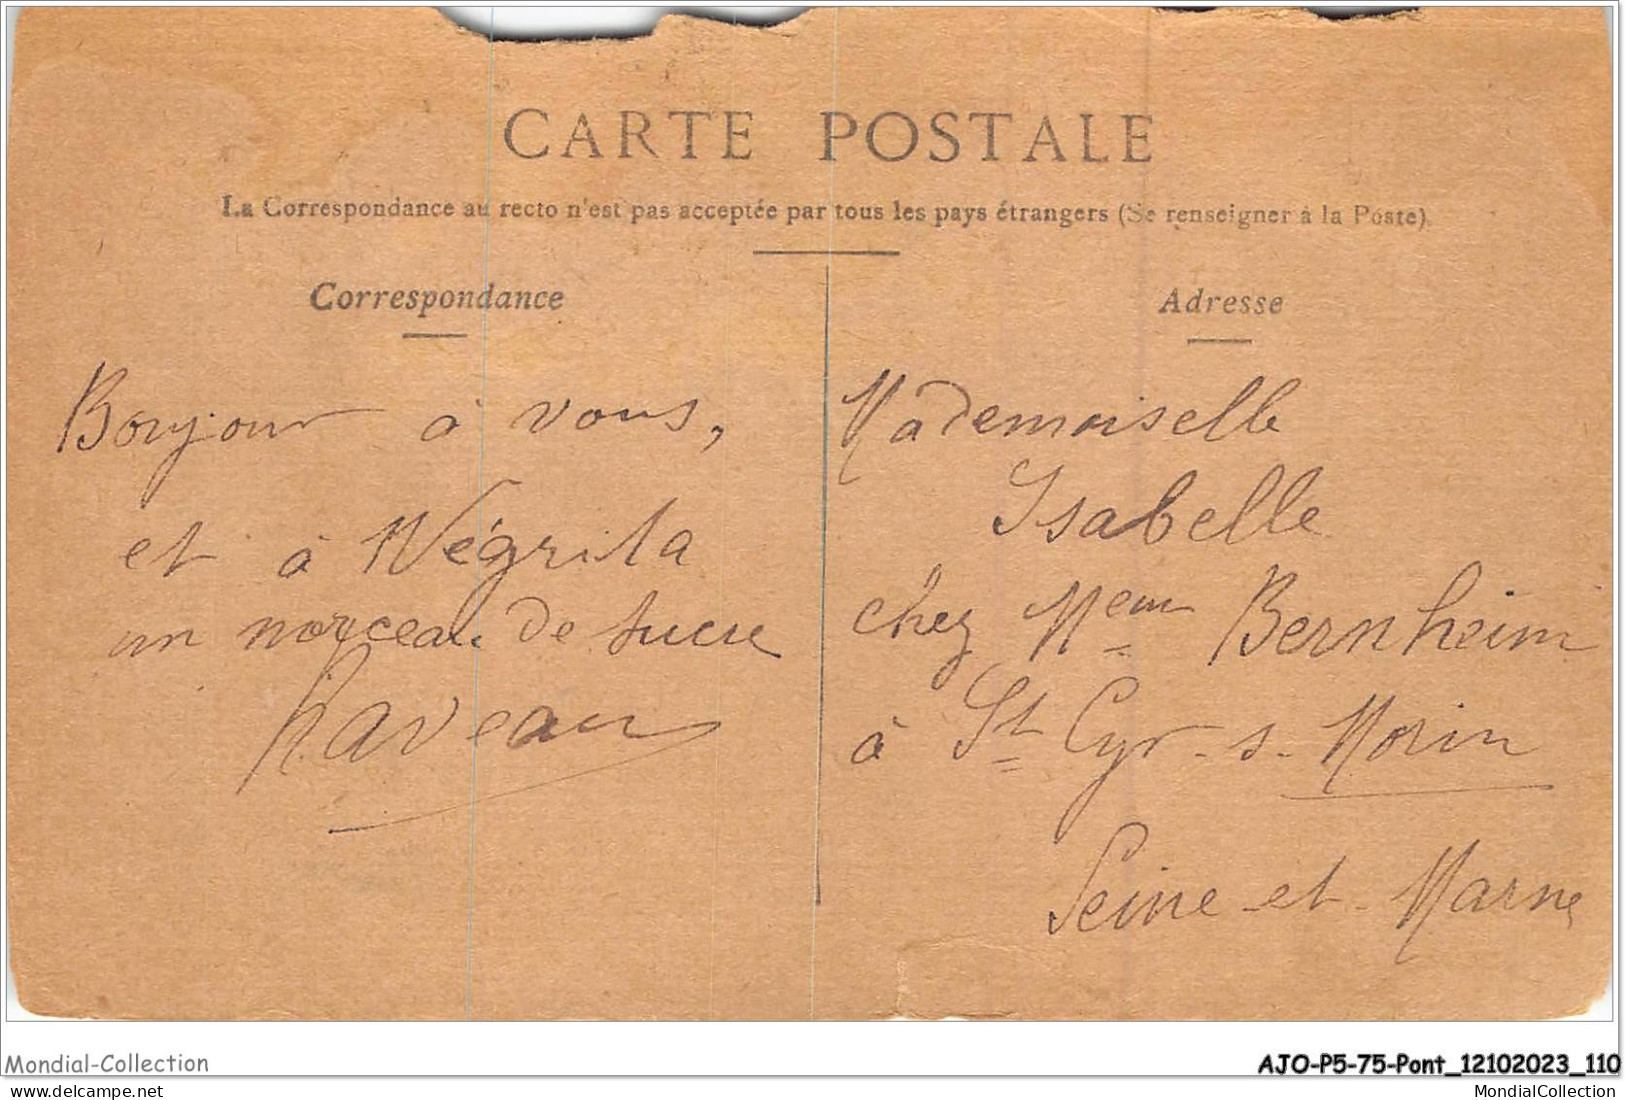 CARTE POSTALE
La Correspondance au recto n'est pas acceptée par tous les pays étrangers (Se renseigner à la Poste).
Correspondance
Bonjour à vous,
et à Négrita
un morceau de sucre
Raveau
Adresse
Mademoiselle
Isabelle
chez Mme Bernheim
à St Cyr-s-Morin
Seine-et-Marne
Mondial-Collection
AJO-P5-75-Pont_12102023_110
©delcampe.net
MondialCollection